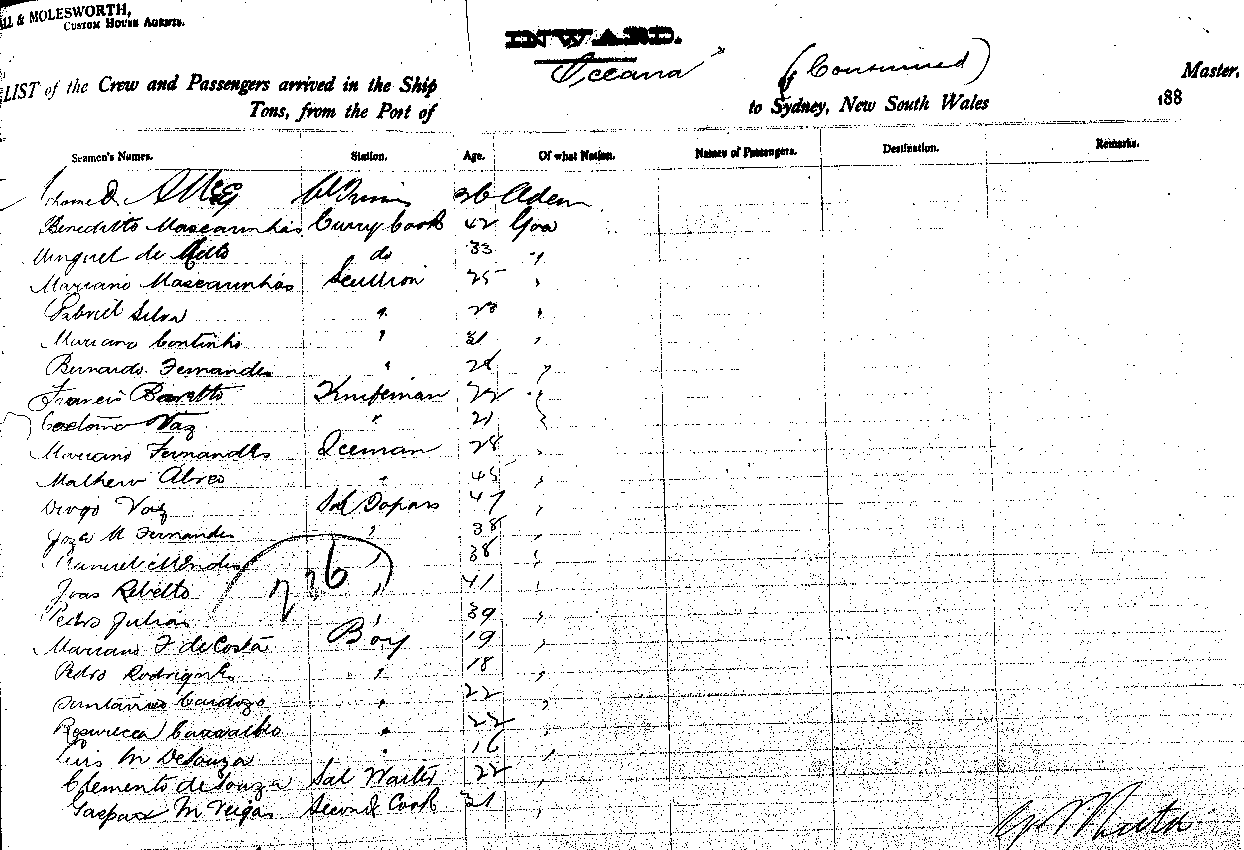 & MOLESWORTH,
CUSTOM HOUSE AGENTS.
INWARD.
LIST of the Crew and Passengers arrived in the Ship Oceana (Continued) Master,
Tons, from the Port of to Sydney, New South Wales 188
Seamen's Names. Station. Age. Of what Nation. Names of Passengers. Destination. Remarks.
36 Aden
Beneditto Mascarinhas Curry Cook 42 Goa
Minguel de Mello do 33 "
Mariano Mascarinhas Scullion 25 "
Gabriel Silva " 23 "
Mariano Continho " 31 "
Bernardo Fernandes " 28 "
Francis Baretto Knifeman 22 "
Caetano Vaz " 21 "
Mariano Fernandes Iceman 28 "
Mathew Alves " 45 "
Diogo Vaz Sal Topars 47 "
Joze M Fernandes " 38 "
Manuel Mendes 38 "
Joas Rebello " 41 "
Pedro Julian " 39 "
236
Mariano F de Costa Boy 19 "
Pedro Rodrigues " 18 "
Cardozo " 22 "
Carvalho " 22 "
Luis M DeSouza " 16 "
Clemento de Souza Sal Waiter 22 "
Gaspar M Veigas Second Cook 31 "